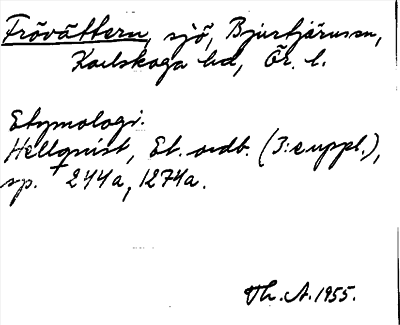 Frövättern, sjö, Bjurtjärnssn,
Karlskoga hd, Ör. l.
Etymologi.
Hellquist, Et. ordb. (3:e uppl.),
sp. 244a, 1274a.
Th. A. 1955.